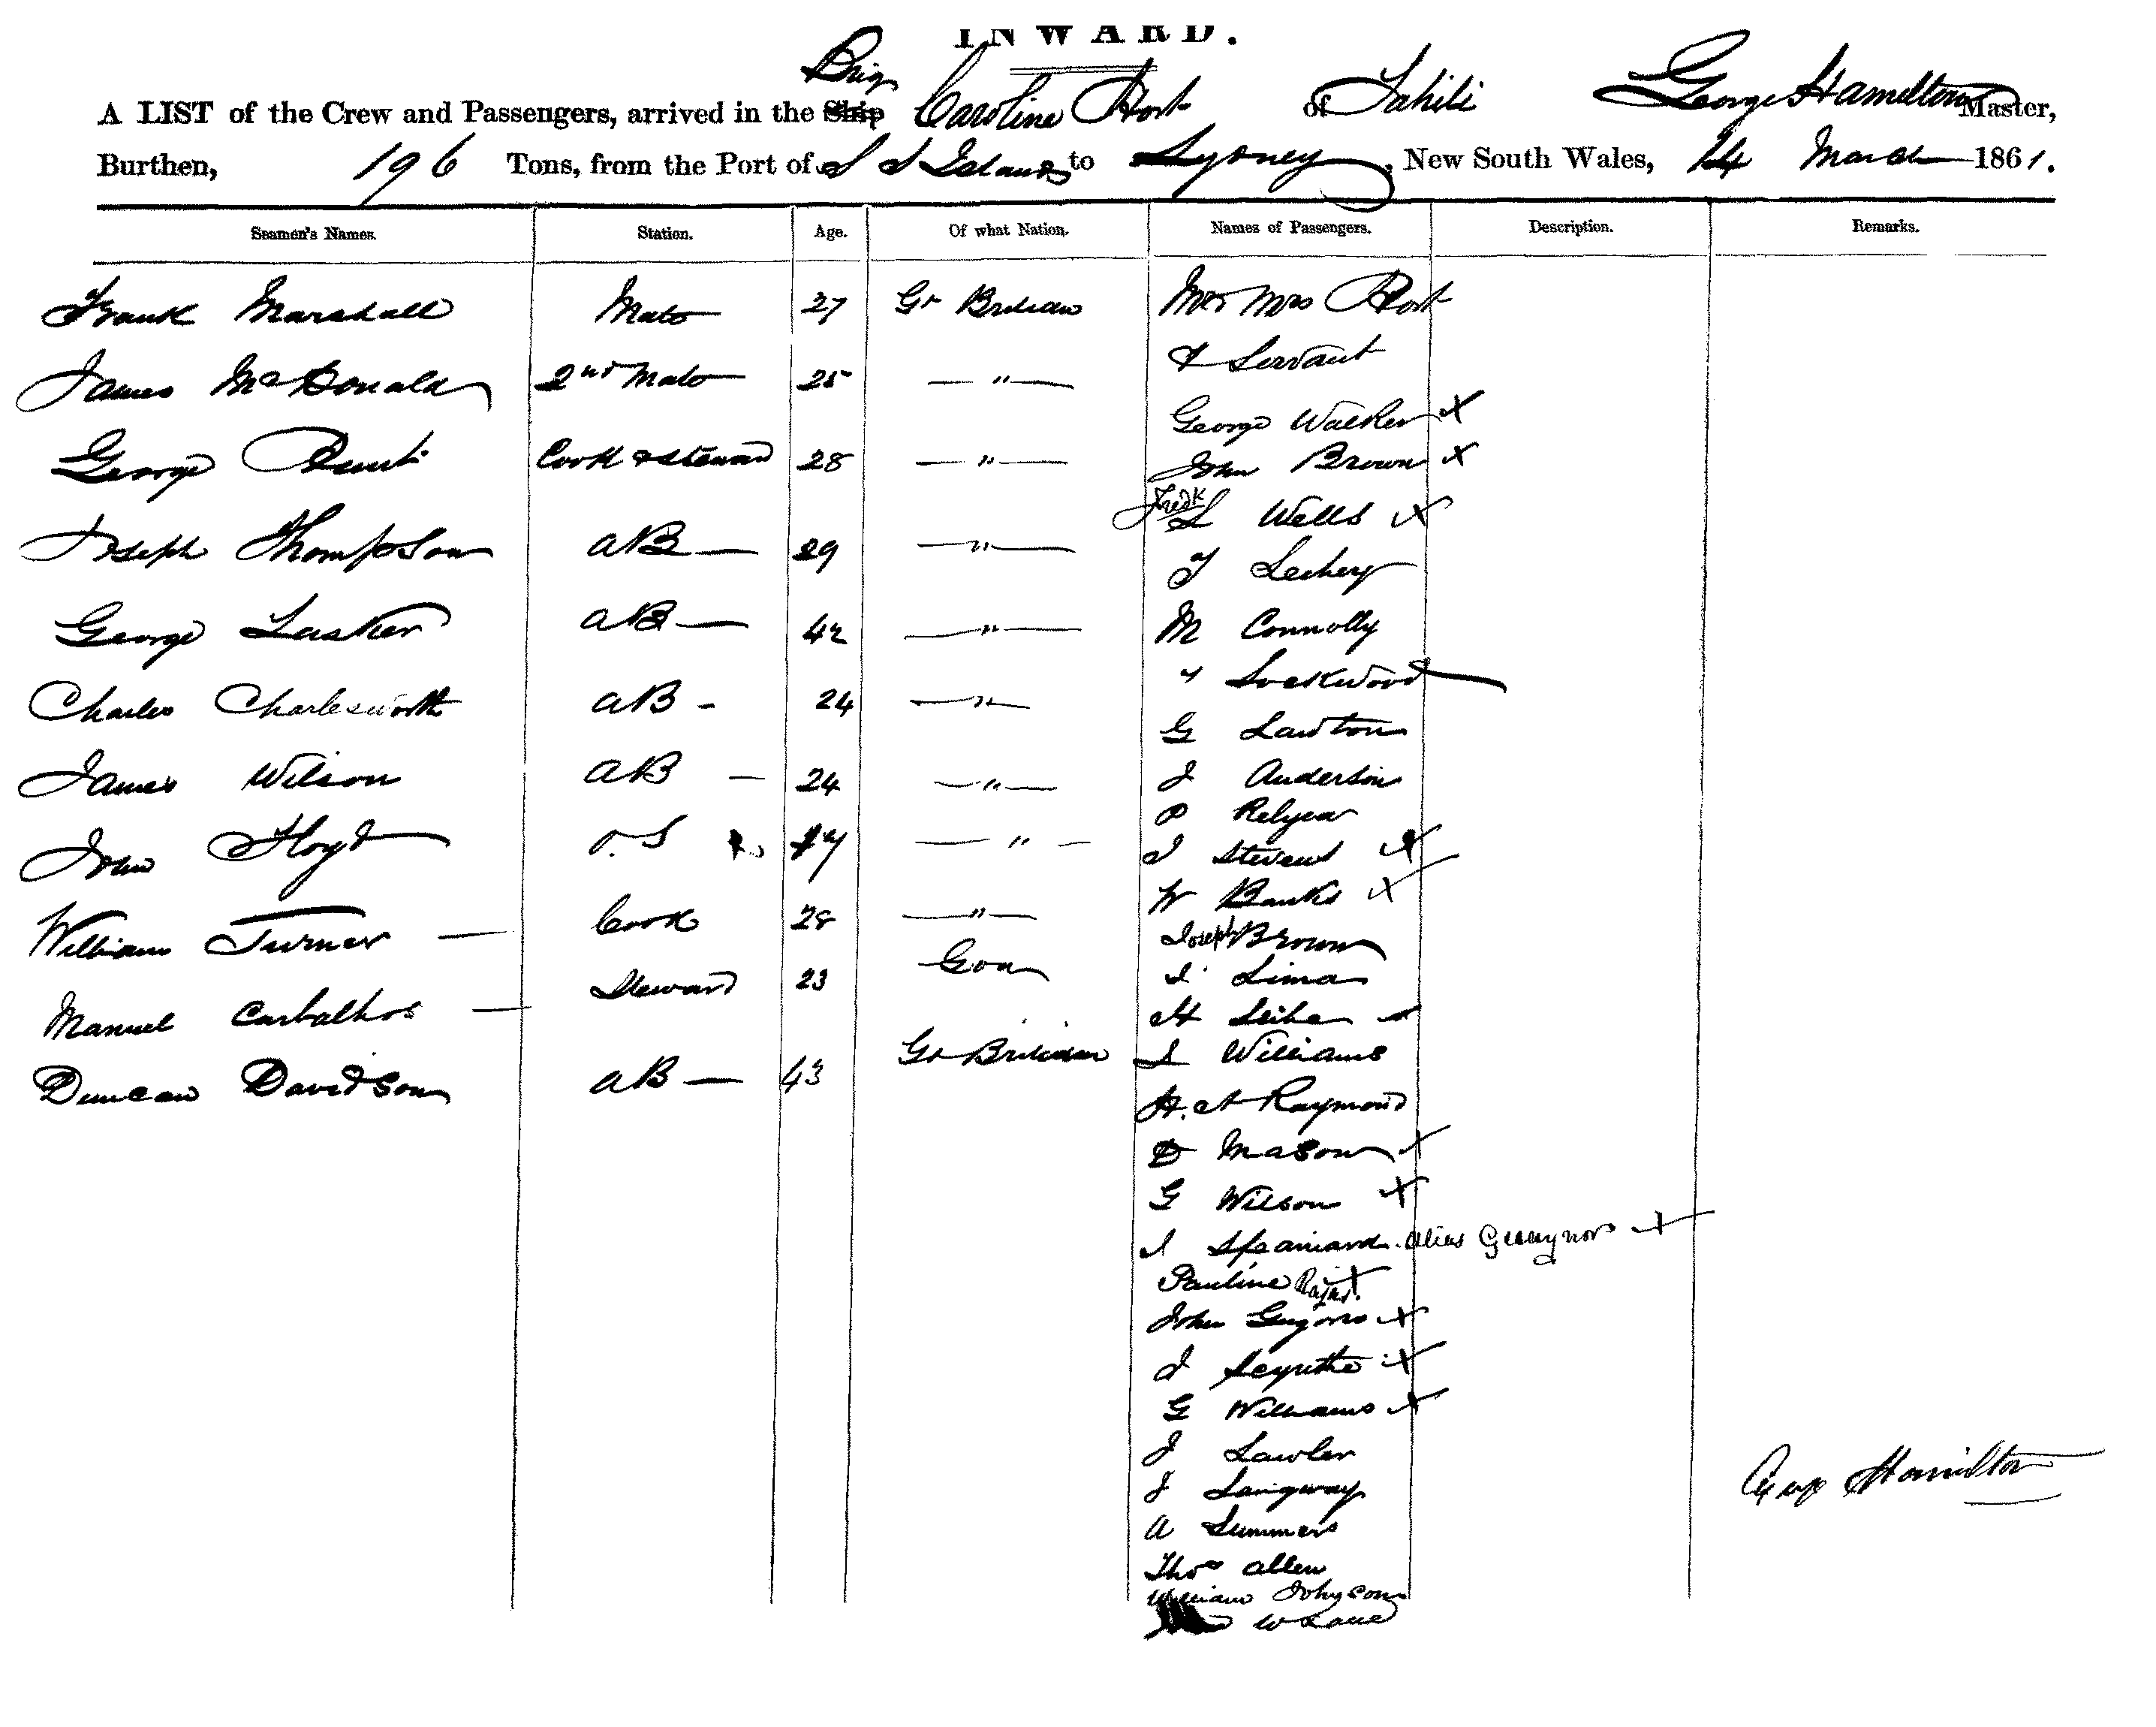 INWARD.
A LIST of the Crew and Passengers, arrived in the Ship Brig Caroline Hort of Tahiti George Hamilton Master,
Burthen, 196 Tons, from the Port of S S Islands to Sydney, New South Wales, 14 March 1861.
Seamen's Names. Station. Age. Of what Nation. Names of Passengers. Description. Remarks.
Frank Marshall Mate 27 Gt Britain Mr & Mrs Hort
& Servant
James McDonald 2nd Mate 25 — " —
George Walker X
George Cook & Steward 28 — " — John Brown X
Fredk Wells X
Joseph Thompson AB — 29 — " —
M Connolly
George Lasker AB — 42 — " —
" Lockwood
Charles Charlesworth AB - 24 — " —
G Lawton
James Wilson AB — 24 — " — J Anderson
P Relyea
John Floyd O.S 17 — " — J Stevens X
W Banks X
William Turner — Cook 28 — " —
Joseph Brown
Manuel Carbalhos — Steward 23 Goa J Lima
H
Duncan Davidson AB — 43 Gt Britain J Williams
H. A Raymond
D Mason X
G Wilson X
J Spaniard. alias X
Pauline Rojas. X
John X
J X
G Williams X
J Lawler
J Langway
A Summers
Thos Allen
William Johnson
W Lane
Geo Hamilton